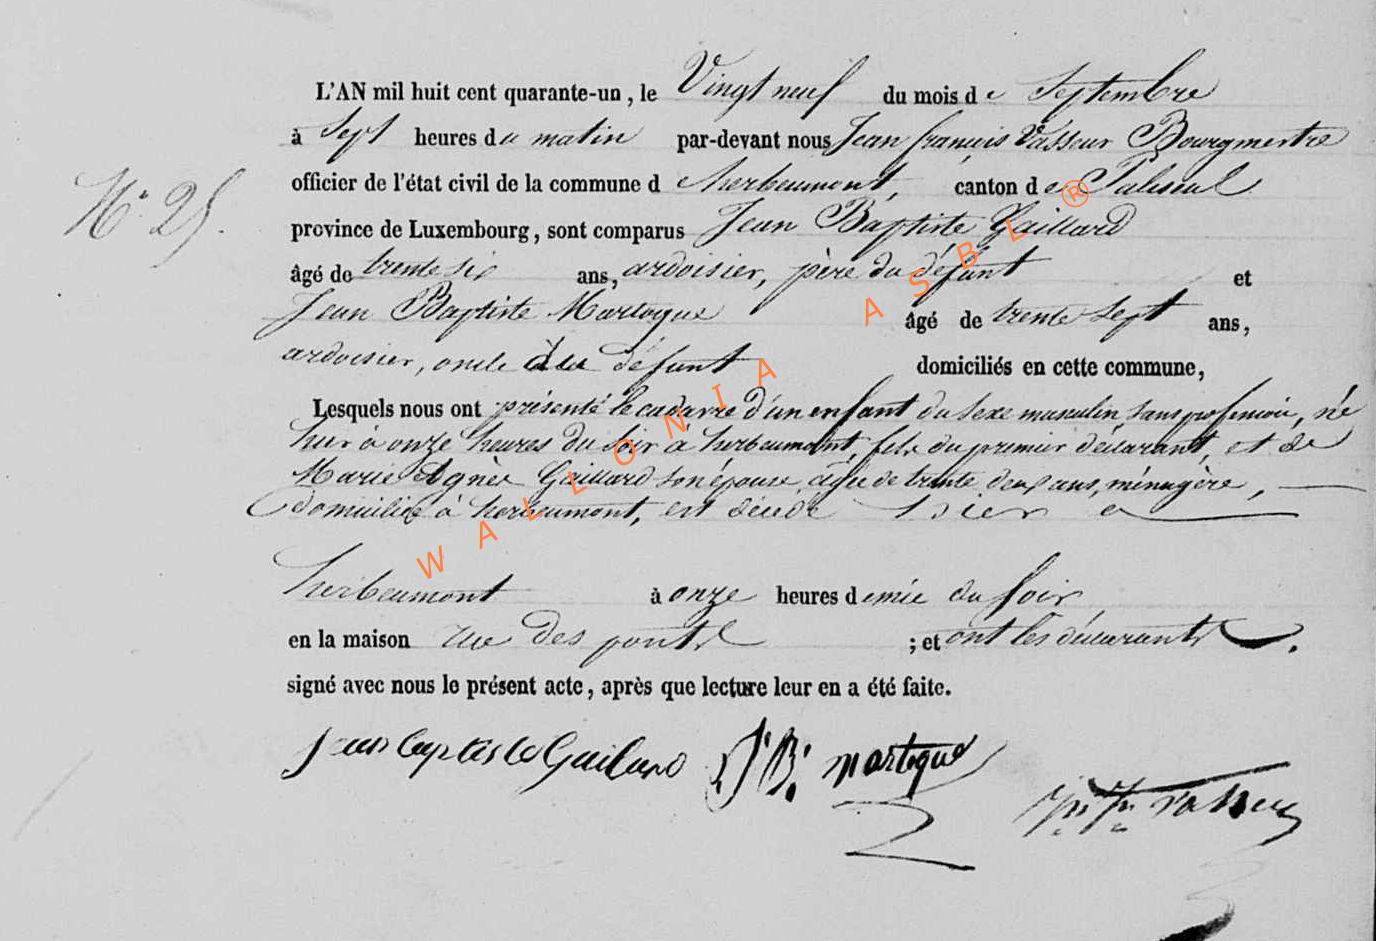 L'AN mil huit cent quarante-un, le Vingt neuf du mois de Septembre
à Sept heures du matin par-devant nous Jean françois Vasseur Bourgmestre
officier de l'état civil de la commune d'herbeumont, canton de Paliseul
N° 25.
province de Luxembourg, sont comparus Jean Baptiste Gaillard
âgé de trente six ans, ardoisier, père du défunt et
Jean Baptiste Martogue âgé de trente Sept ans,
ardoisier, oncle du défunt domiciliés en cette commune,
Lesquels nous ont présenté le cadavre d'un enfant du Sexe masculin, sans profession, né
hier à onze heures du soir à herbeumont, fils du premier déclarant, et de
Marie Agnès Gaillard son épouse, âgée de trente deux ans, ménagère,
domiciliée à herbeumont, est décédé hier à
herbeumont à onze heures demie du soir
en la maison rue des ponts ; et ont les déclarants
signé avec nous le présent acte, après que lecture leur en a été faite.
jean baptiste Gaillard J. B. martogue Jn fs Vasseur
WALLONIA ASBL ®